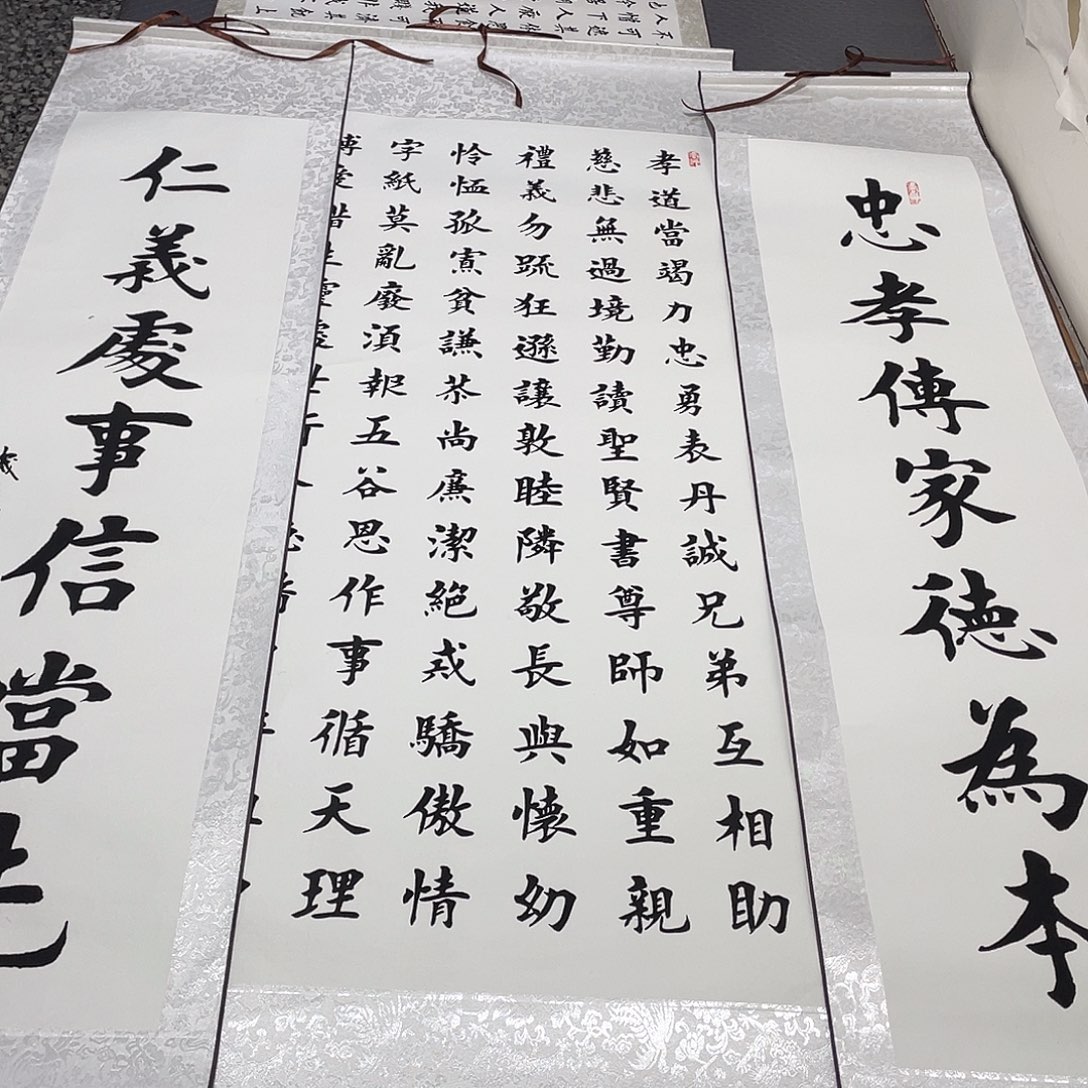 忠孝傳家德為本
孝道當竭力忠勇表丹誠兄弟互相助
慈悲無過境勤讀聖賢書尊師如重親
禮義勿疏狂遜讓敦睦隣敬長與懷幼
怜恤孤寡貧謙恭尚廉潔絕戒驕傲情
字紙莫亂廢須報五谷恩作事循天理
博愛惜生靈處世行八德
仁義處事信當先